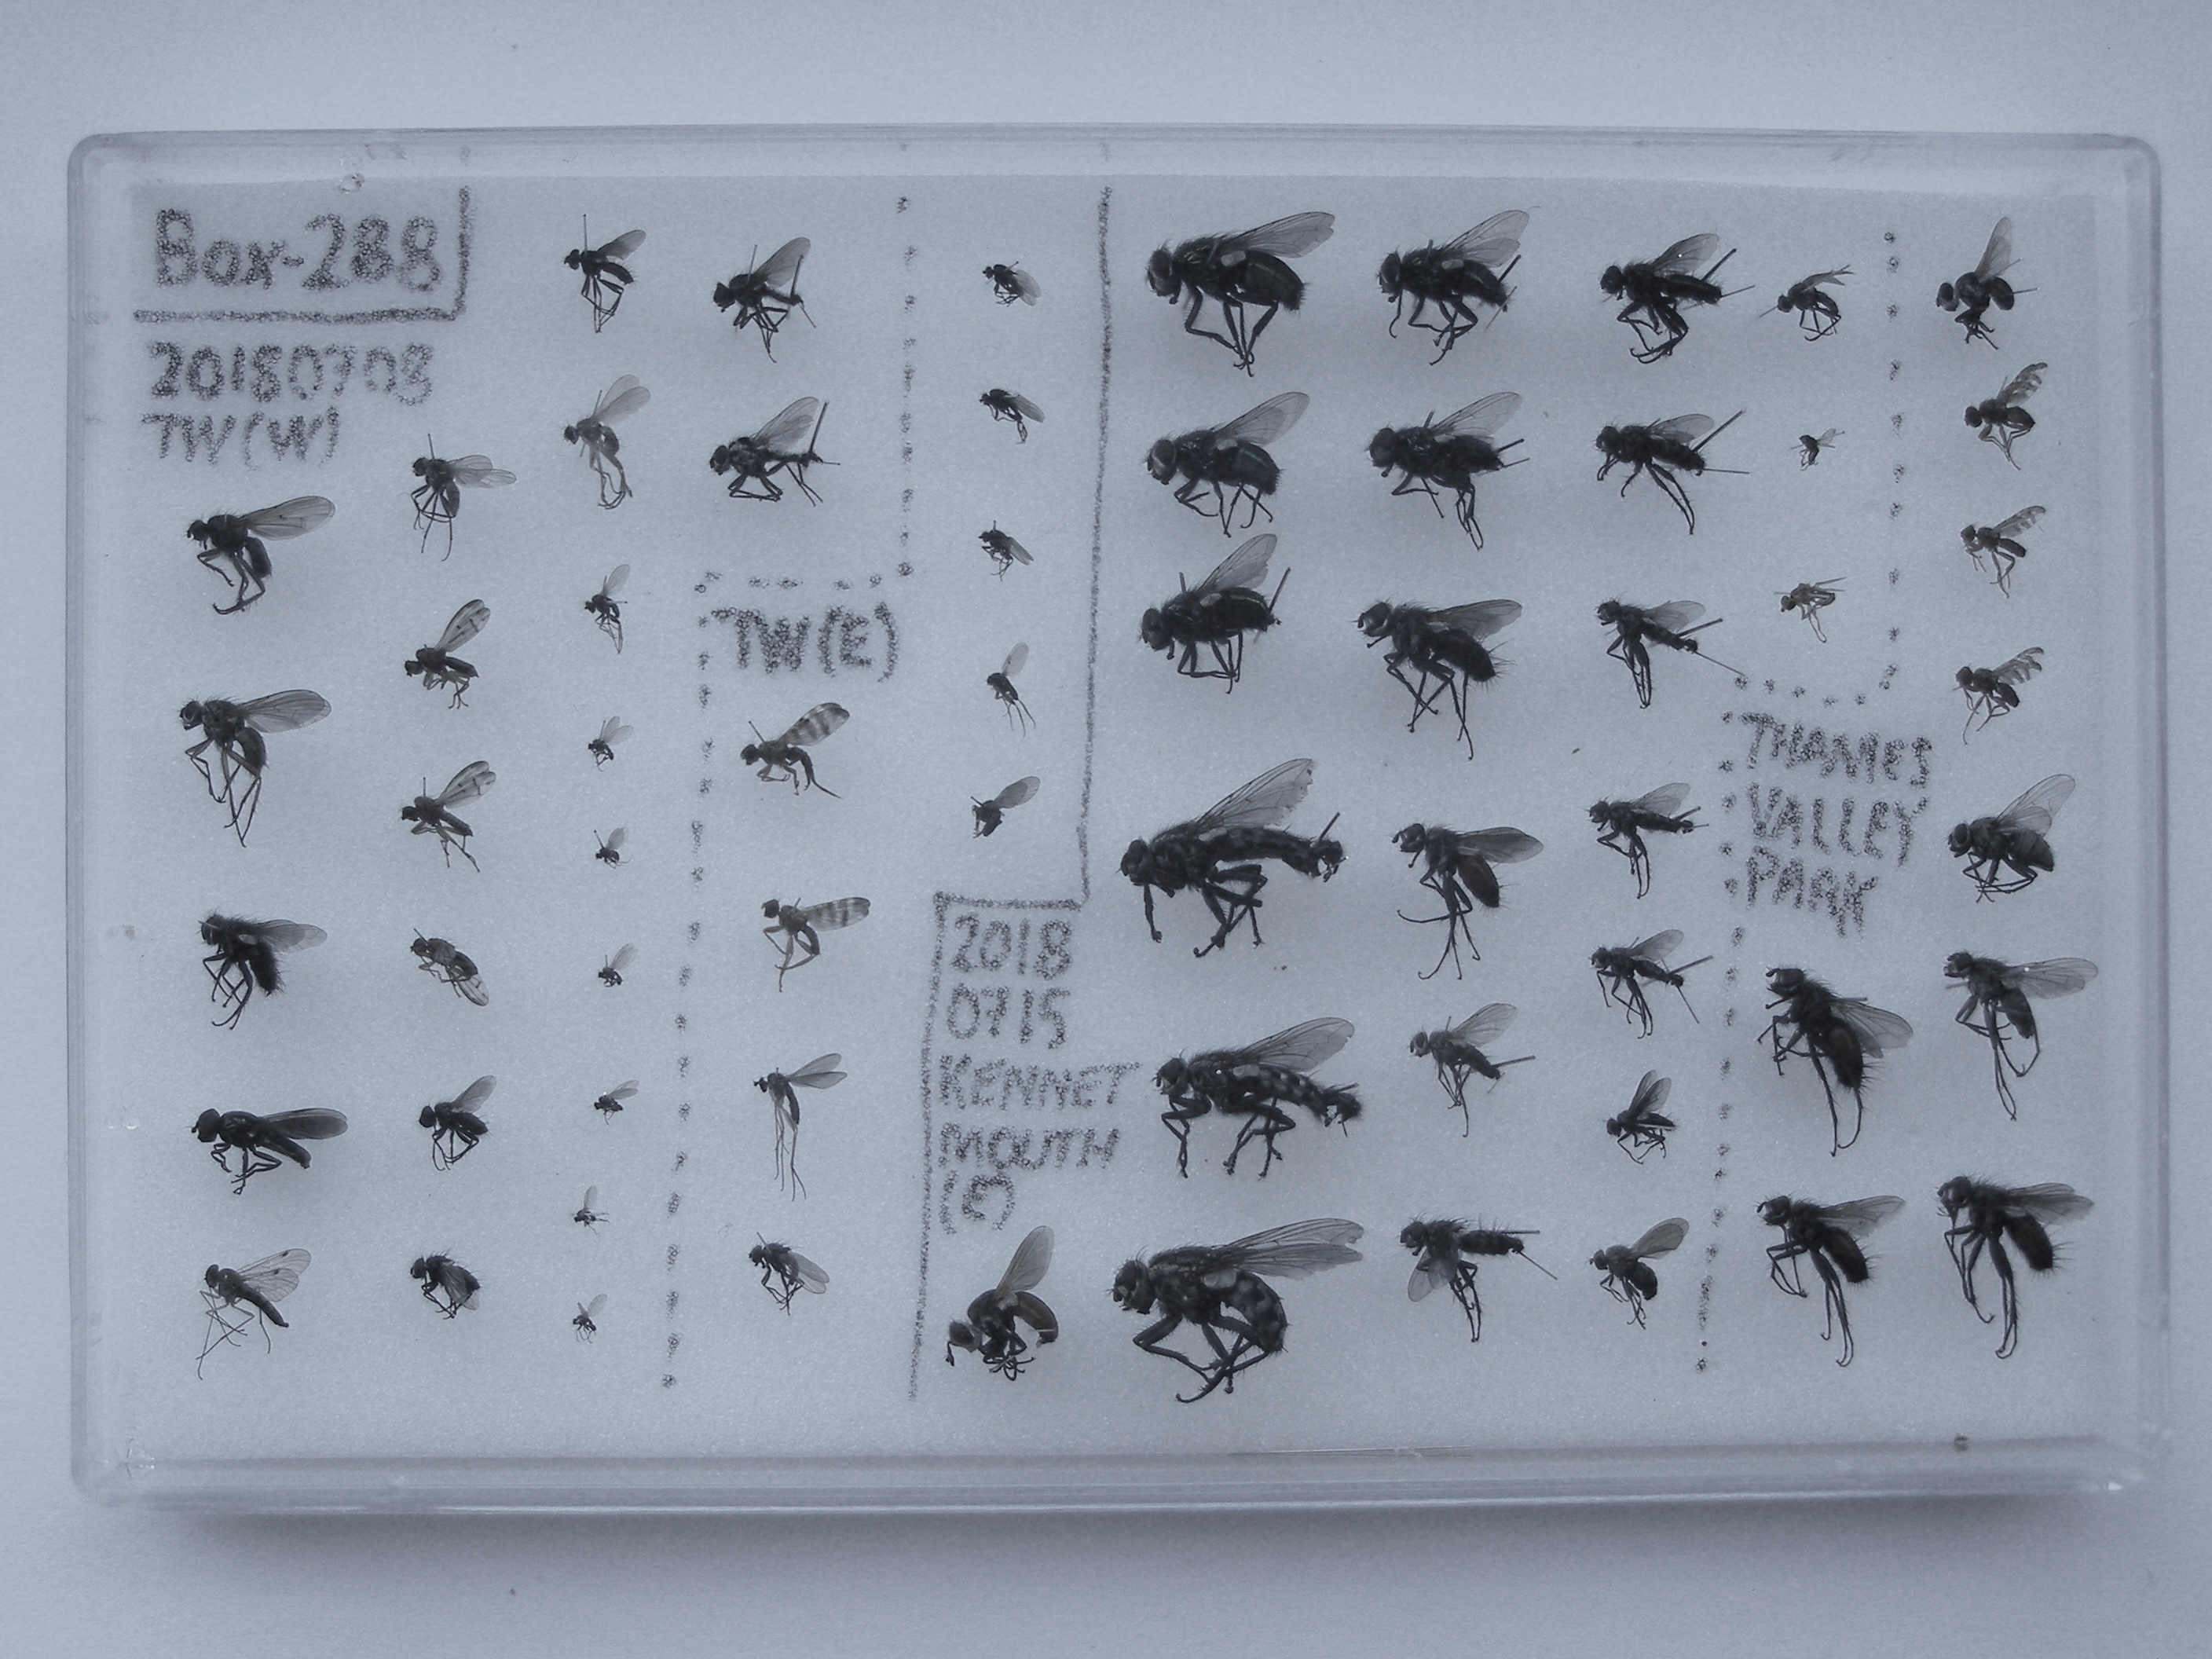 Box-288
20180708
TW(W)
TW(E)
2018
0715
KENNET
MOUTH
(E)
THAMES
VALLEY
PARK